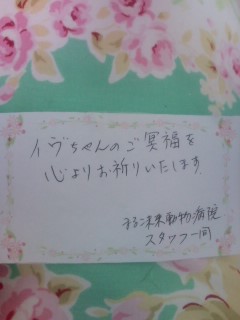 イヴちゃんのご冥福を
心よりお祈りいたします
まるこ未来動物病院
スタッフ一同